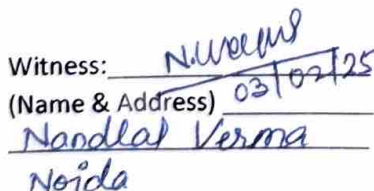 Witness: N.Verma
(Name & Address) 03/02/25
Nandlal Verma
Noida